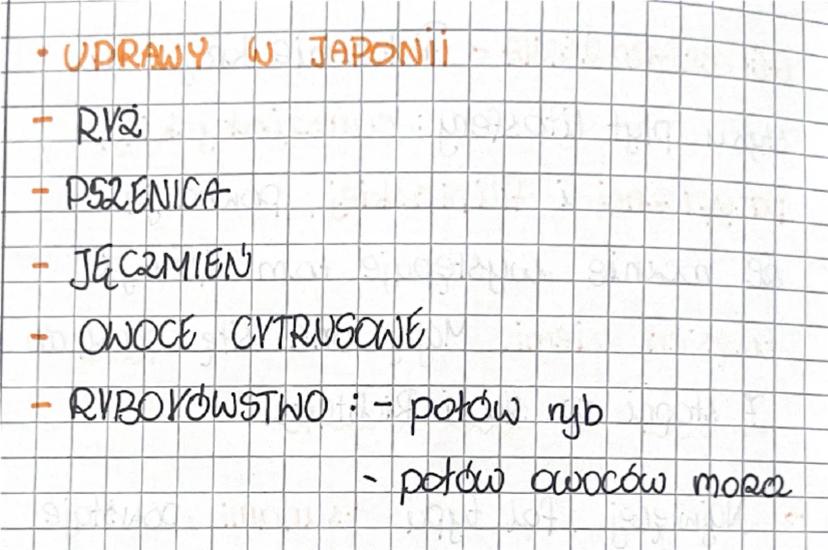 • UPRAWY W JAPONII
- RYŻ
- PSZENICA
- JĘCZMIEŃ
- OWOCE CYTRUSOWE
- RYBOŁÓWSTWO : - połów ryb
- połów owoców morza